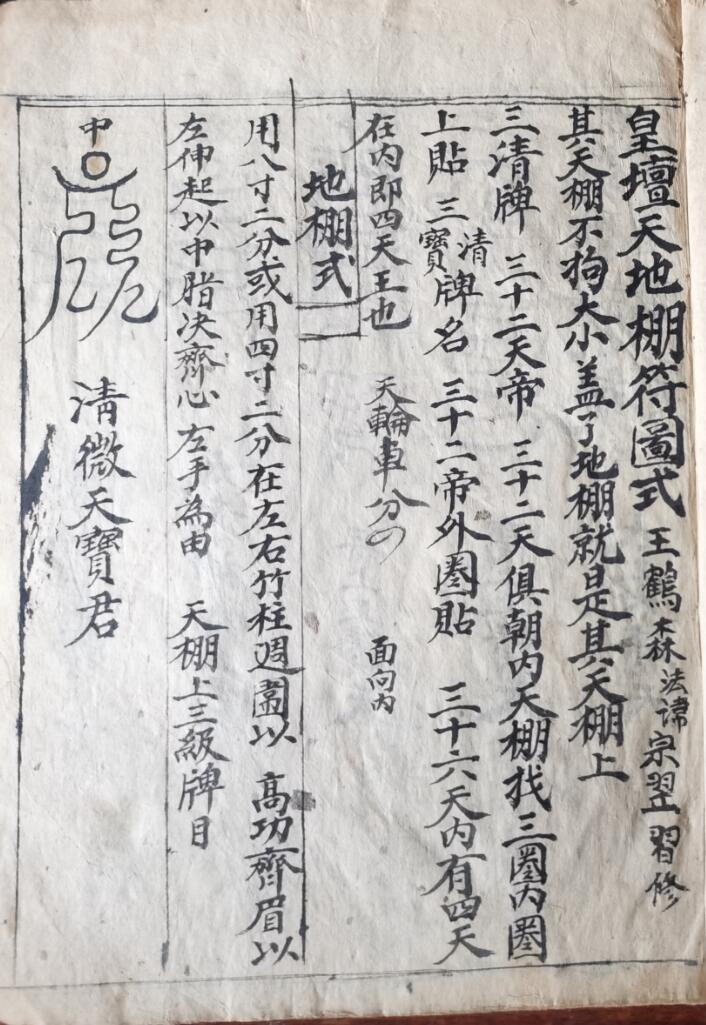 皇壇天地棚符圖式 王鶴森法諱宗翌習修
其天棚不狗大小盖了地棚就是其天棚上
三清牌 三十二天帝 三十二天俱朝内天棚找三圈内圈
上貼 三清寶牌名 三十二帝外圈貼 三十六天内有四天
在内即四天王也 天輪車分 面向内
地棚式
用八寸二分或用四寸二分在左右竹柱週圍以 高功齊眉以
左伸起以中腊决齊心左手為由 天棚上三級牌目
中 清微天寶君